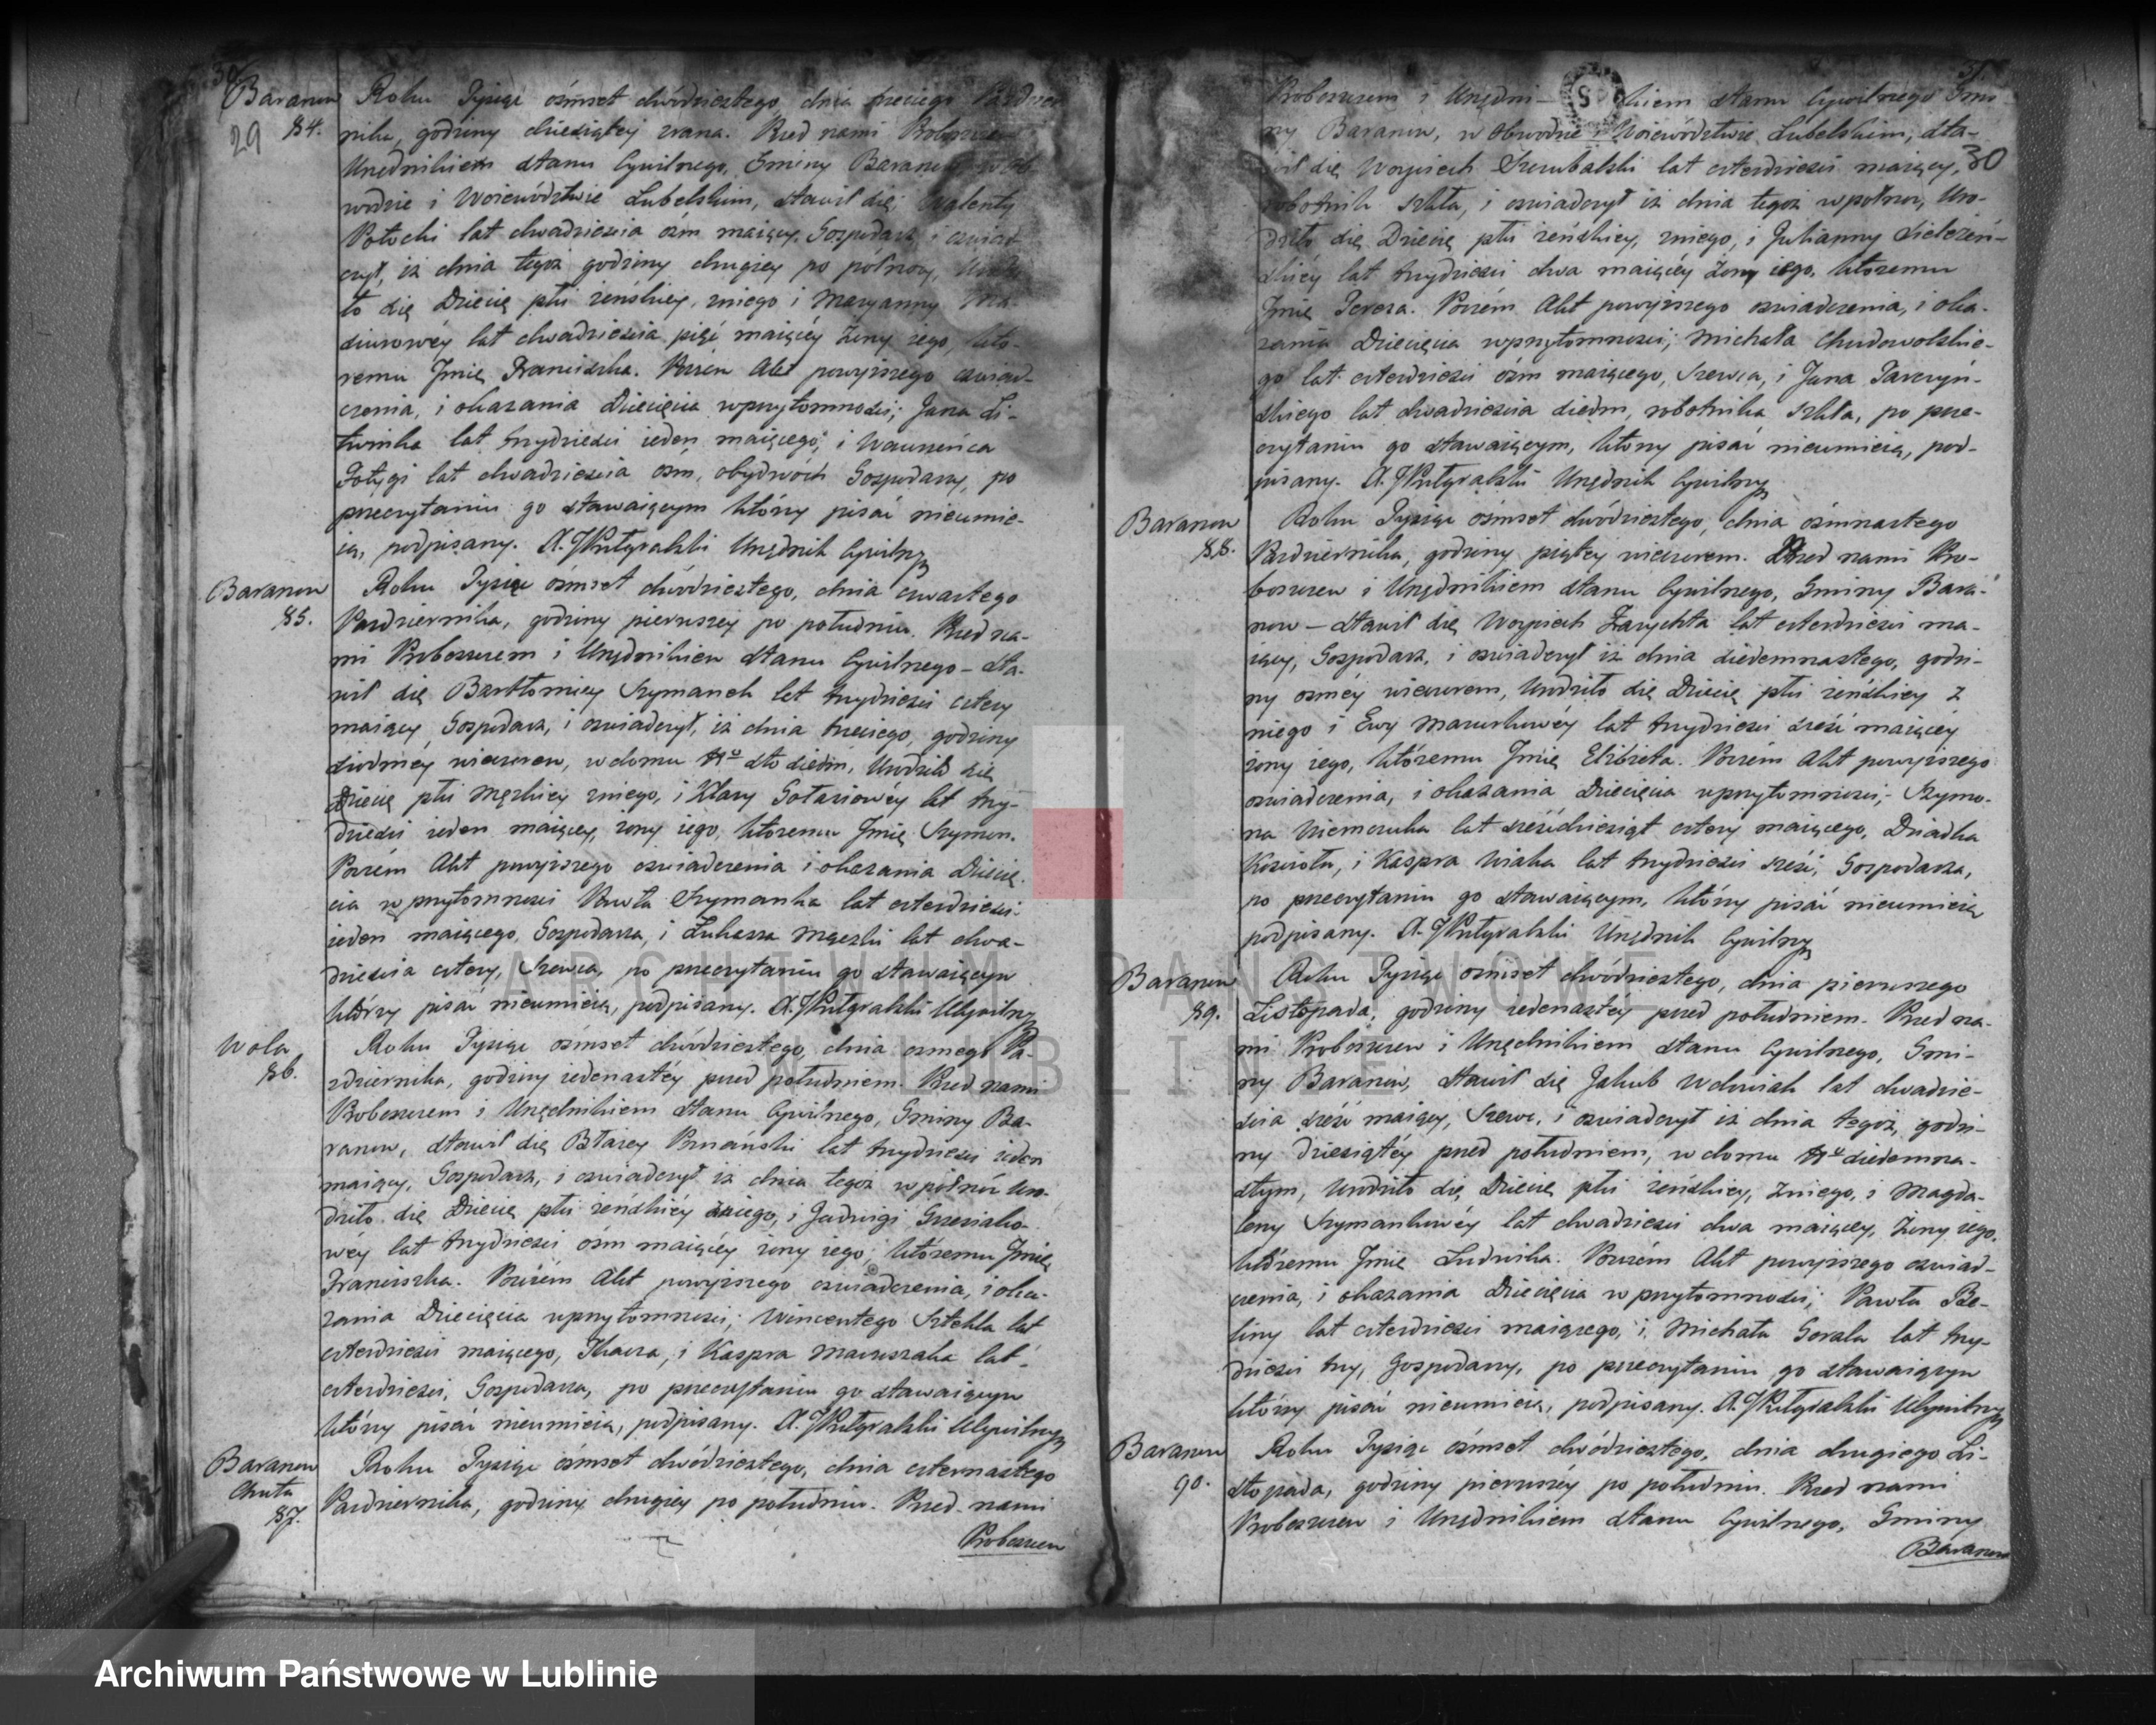 30
Baranow
84.
29
Roku Tysiąc ośmset dwódziestego, dnia trzeciego Paździer
nika, godziny dziesiątey zrana. Przed nami Proboszczem
Urzędnikiem stanu Cywilnego, Gminy Baranow w Ob
wodzie i Woiewództwie Lubelskim, stawił się Walenty
Potocki lat dwadzieścia ośm maiący, Gospodarz i oświad
czył, iż dnia tegoż godziny drugiey po północy, Urodzi
ło się Dziecię płci żeńskiey, zniego i Maryanny
lat dwadzieścia pięć maiącéy Żony iego, któ-
remu Jmię Franciszka. Poczém Akt powyższego oświad-
czenia, i okazania Dziecięcia wprzytomności; Jana Li-
twinka lat trzydzieści ieden maiącego; i Wawrzeńca
lat dwadzieścia ośm, obydwóch Gospodarzy, po
przeczytaniu go stawaiącym którzy pisać nieumie-
ią, podpisany. A. Urzędnik Cywilny
Baranow
85.
Roku Tysiąc ośmset dwódziestego, dnia czwartego
Października, godziny pierwszey po południu. Przed na-
mi Proboszczem i Urzędnikiem stanu Cywilnego – sta-
wił się Bartłomiey Szymanek lat trzydzieści cztery
maiący, Gospodarz, i oświadczył, iż dnia trzeciego, godziny
siódmey wieczorem, w domu No sto siedm, Urodziło się
Dziecię płci Męzkiey zniego, i Klary Gołasiowéy lat trzy-
dzieści ieden maiącey, żony iego, któremu Jmię Szymon.
Poczém Akt powyższego oświadczenia i okazania Dziecię-
cia w przytomności Pawła Szymanka lat czterdzieści
ieden maiącego, Gospodarza, i Łukasza Mączki lat dwa-
dzieścia cztery, Szewca, po przeczytaniu go stawaiącym
którzy pisać nieumieią, podpisany. A. UCywilny
Wola
86.
Roku Tysiąc ośmset dwódziestego, dnia osmego Pa-
ździernika, godziny iedenastéy przed południem. Przed nami
Proboszczem i Urzędnikiem stanu Cywilnego, Gminy Ba-
ranow, stawił się Błażey Poznański lat trzydzieści ieden
maiący, Gospodarz, i oświadczył iż dnia tegoż w północ Uro-
dziło się Dziecię płci żeńskiéy zniego, i Jadwigi Grzesiako-
wéy lat trzydzieści ośm maiącéy żony iego, któremu Jmię
Franciszka. Poczém Akt powyższego oświadczenia, i oka-
zania Dziecięcia wprzytomności; Wincentego Sztekla lat
czterdzieści maiącego, Tkacza, i Kaspra Marczaka lat
czterdzieści, Gospodarza, po przeczytaniu go stawaiącym
którzy pisać nieumieią, podpisany. A. UCywilny
Baranow
Chuta
87.
Roku Tysiąc ośmset dwódziestego, dnia czternastego
Października, godziny drugiey po południu. Przed nami
Proboszczem
31.
30
Proboszczem i Urzędni- kiem stanu Cywilnego Gmi
ny Baranow, w Obwodzie i Woiewództwie Lubelskim, sta-
wił się Woyciech lat czterdzieści maiący,
robotnik szkła, i oświadczył iż dnia tegoż wpółnoc, Uro-
dziło się Dziecię płci żeńskiey, zniego, i Julianny Sieleżeń-
skiey lat trzydzieści dwa maiącéy żony iego, któremu
Jmię Teresa. Poczém Akt powyższego oświadczenia, i oka-
zania Dziecięcia wprzytomności; Michała Chudowolskie-
go lat czterdzieści ośm maiącego, Szewca, i Jana Tarczyń-
skiego lat dwadzieścia siedm, robotnika szkła, po prze-
czytaniu go stawaiącym, którzy pisać nieumieią, pod-
pisany. A. Urzędnik Cywilny
Baranow
88.
Roku Tysiąc ośmset dwódziestego, dnia ośmnastego
Października, godziny piątey wieczorem. Przed nami Pro-
boszczem i Urzędnikiem stanu Cywilnego, Gminy Bara-
now – stawił się Woyciech Zarychta lat czterdzieści ma-
iący, Gospodarz, i oświadczył iż dnia siedemnastego, godzi-
ny osméy wieczorem, Urodziło się Dziecię płci żeńskiey z
niego i Ewy Marczukowéy lat trzydzieści sześć maiącey
żony iego, któremu Jmię Elżbieta. Poczém Akt powyższego
oświadczenia, i okazania Dziecięcia wprzytomności; Szymo-
na Niemczuka lat sześćdziesiąt cztery maiącego, Dziadka
Kościoła, i Kaspra Wiaka lat trzydzieści sześć, Gospodarza,
po przeczytaniu go stawaiącym, którzy pisać nieumieią
podpisany. A. Urzędnik Cywilny
Baranow
89.
Roku Tysiąc ośmset dwódziestego, dnia pierwszego
Listopada, godziny iedenastéy przed południem. Przed na-
mi Proboszczem i Urzędnikiem stanu Cywilnego, Gmi-
ny Baranow, stawił się Jakub Wdowiak lat dwadzie-
ścia sześć maiący, Szewc, i oświadczył iż dnia tegoż, godzi-
ny dziesiątéy przed południem, w domu No siedemna-
stym, Urodziło się Dziecię płci żeńskiey, zniego, i Magda-
leny Szymankowéy lat dwadzieści dwa maiącey, żony iego,
któremu Jmię Ludwika. Poczém Akt powyższego oświad-
czenia, i okazania Dziecięcia w przytomności; Pawła Be-
liny lat czterdzieści maiącego, i Michała Gorala lat trzy-
dzieści trzy, Gospodarzy, po przeczytaniu go stawaiącym
którzy pisać nieumieią, podpisany. A. UCywilny
Baranow
90.
Roku Tysiąc ośmset dwódziestego, dnia drugiego Li-
stopada, godziny pierwszéy po południu. Przed nami
Proboszczem i Urzędnikiem stanu Cywilnego, Gminy
Baranow
ARCHIWUM PAŃSTWOWE
W LUBLINIE
Archiwum Państwowe w Lublinie